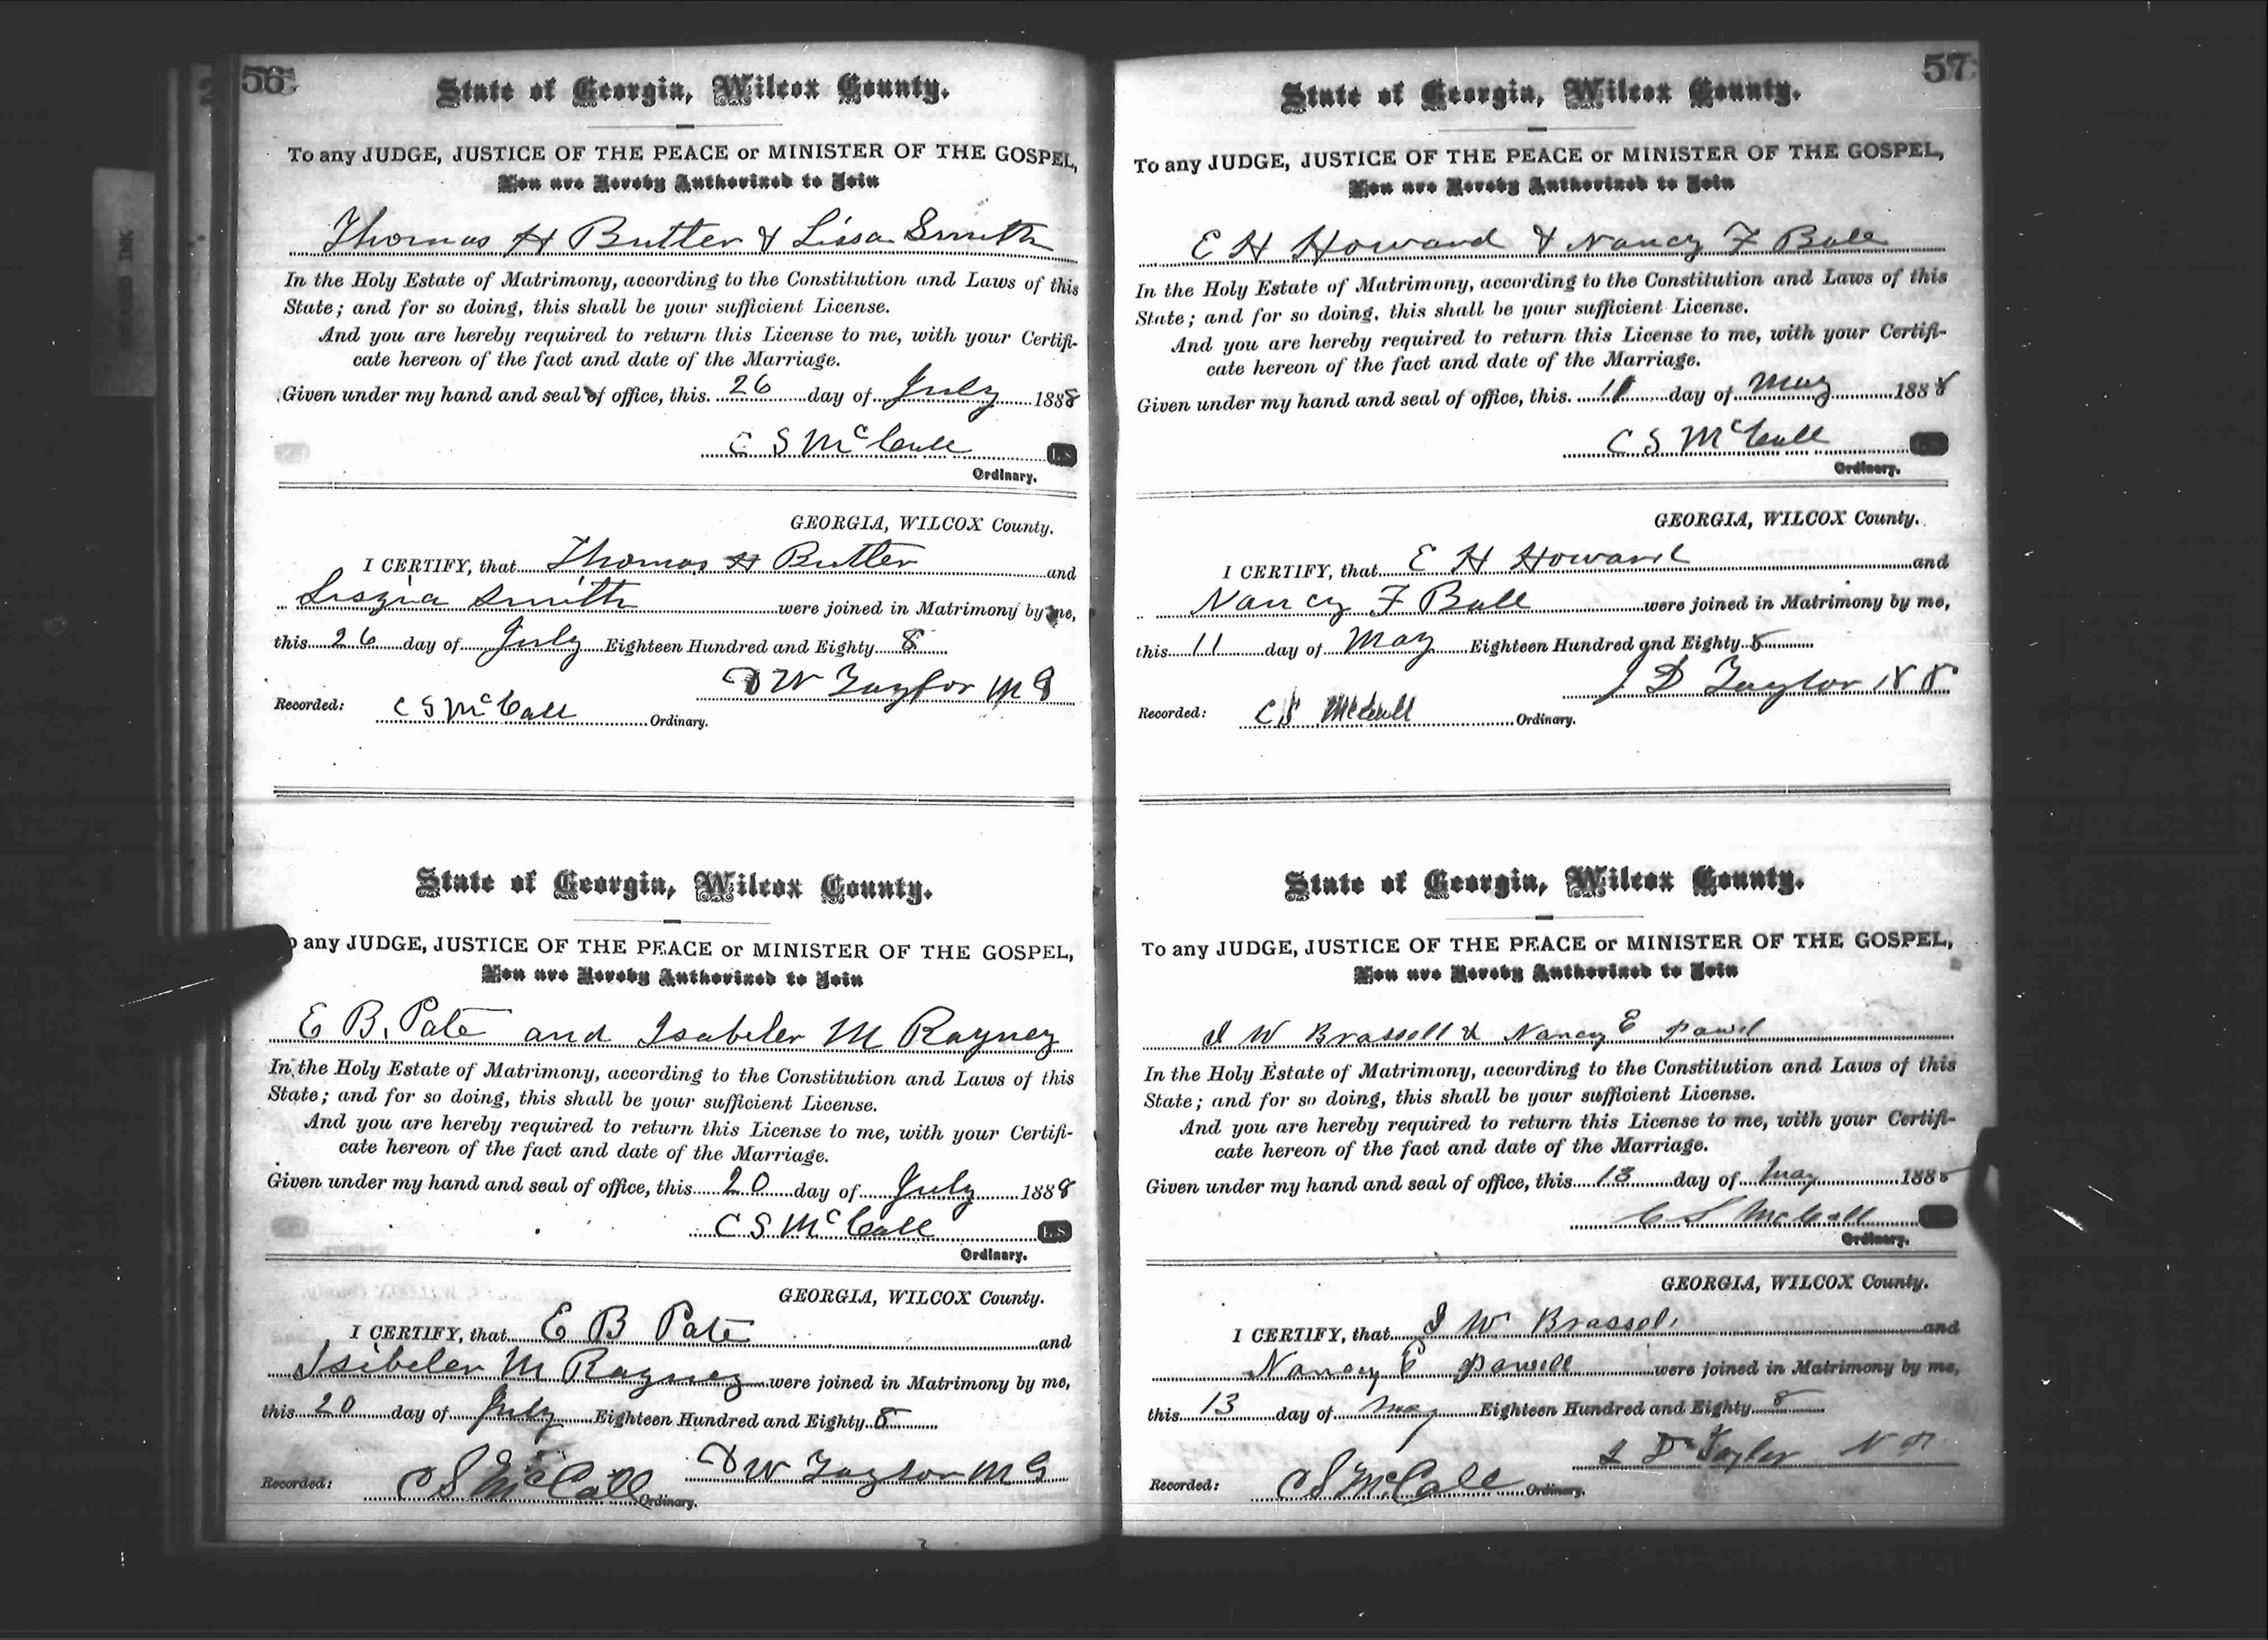 56
State of Georgia, Wilcox County.
To any JUDGE, JUSTICE OF THE PEACE or MINISTER OF THE GOSPEL,
You are Hereby Authorized to Join
Thomas H Butler & Lissa Smith
In the Holy Estate of Matrimony, according to the Constitution and Laws of this
State; and for so doing, this shall be your sufficient License.
And you are hereby required to return this License to me, with your Certifi-
cate hereon of the fact and date of the Marriage.
Given under my hand and seal of office, this 26 day of July 1888
C S McCall LS
Ordinary.
GEORGIA, WILCOX County.
I CERTIFY, that Thomas H Butler and
Smith were joined in Matrimony by me,
this 26 day of July Eighteen Hundred and Eighty 8
D W Taylor M G
Recorded: C S McCall Ordinary.
State of Georgia, Wilcox County.
To any JUDGE, JUSTICE OF THE PEACE or MINISTER OF THE GOSPEL,
You are Hereby Authorized to Join
E B. Pate and Isabeler M Rayney
In the Holy Estate of Matrimony, according to the Constitution and Laws of this
State; and for so doing, this shall be your sufficient License.
And you are hereby required to return this License to me, with your Certifi-
cate hereon of the fact and date of the Marriage.
Given under my hand and seal of office, this 20 day of July 1888
C S McCall LS
Ordinary.
GEORGIA, WILCOX County.
I CERTIFY, that E B Pate and
Isibeler M Rayney were joined in Matrimony by me,
this 20 day of July Eighteen Hundred and Eighty 8
D W Taylor M G
Recorded: C S McCall Ordinary.
57
State of Georgia, Wilcox County.
To any JUDGE, JUSTICE OF THE PEACE or MINISTER OF THE GOSPEL,
You are Hereby Authorized to Join
E H Howard & Nancy F Ball
In the Holy Estate of Matrimony, according to the Constitution and Laws of this
State; and for so doing, this shall be your sufficient License.
And you are hereby required to return this License to me, with your Certifi-
cate hereon of the fact and date of the Marriage.
Given under my hand and seal of office, this 11 day of May 1888
C S McCall LS
Ordinary.
GEORGIA, WILCOX County.
I CERTIFY, that E H Howard and
Nancy F Ball were joined in Matrimony by me,
this 11 day of May Eighteen Hundred and Eighty 8
J D Taylor
Recorded: C S McCall Ordinary.
State of Georgia, Wilcox County.
To any JUDGE, JUSTICE OF THE PEACE or MINISTER OF THE GOSPEL,
You are Hereby Authorized to Join
J W Brassell & Nancy E Powel
In the Holy Estate of Matrimony, according to the Constitution and Laws of this
State; and for so doing, this shall be your sufficient License.
And you are hereby required to return this License to me, with your Certifi-
cate hereon of the fact and date of the Marriage.
Given under my hand and seal of office, this 13 day of May 1888
C S McCall
Ordinary.
GEORGIA, WILCOX County.
I CERTIFY, that J W Brassel and
Nancy E Powell were joined in Matrimony by me,
this 13 day of May Eighteen Hundred and Eighty 8
Taylor
Recorded: C S McCall Ordinary.